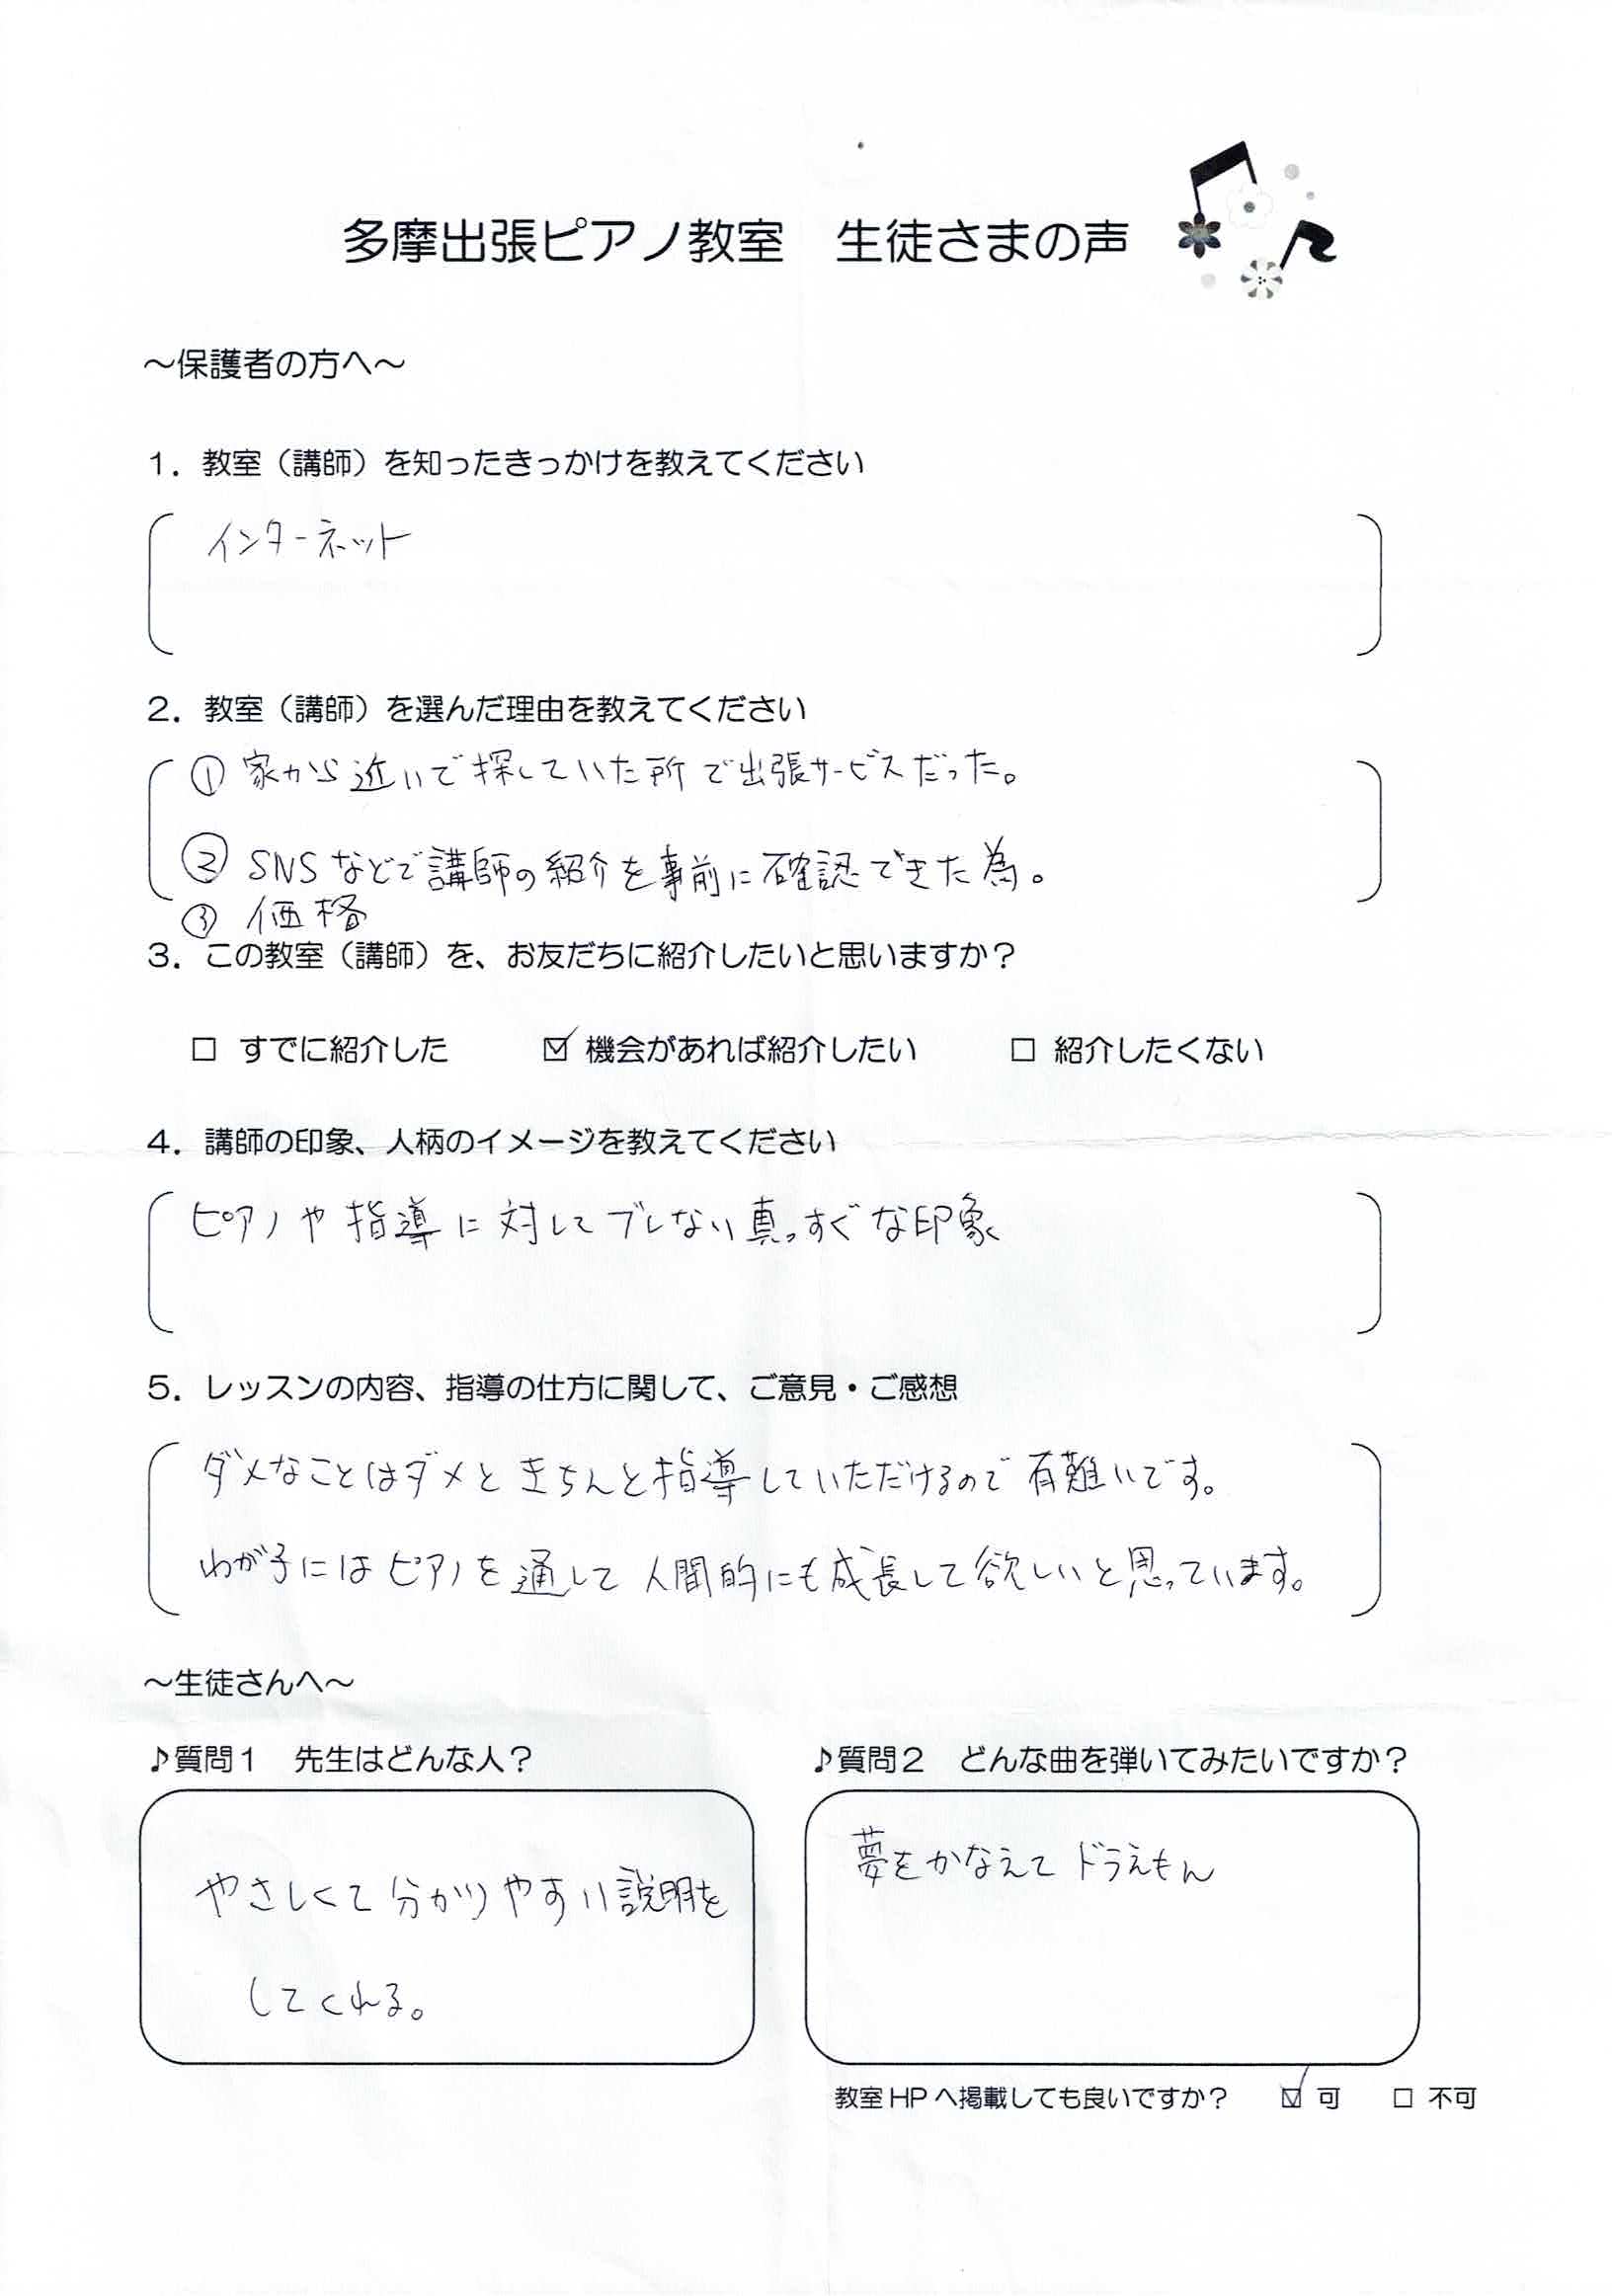 多摩出張ピアノ教室　生徒さまの声
～保護者の方へ～
１．教室（講師）を知ったきっかけを教えてください
インターネット
２．教室（講師）を選んだ理由を教えてください
① 家から近いで探していた所で出張サービスだった。
② SNSなどで講師の紹介を事前に確認できた為。
③ 価格
３．この教室（講師）を、お友だちに紹介したいと思いますか？
□ すでに紹介した　☑ 機会があれば紹介したい　□ 紹介したくない
４．講師の印象、人柄のイメージを教えてください
ピアノや指導に対してブレない真っすぐな印象
５．レッスンの内容、指導の仕方に関して、ご意見・ご感想
ダメなことはダメときちんと指導していただけるので有難いです。
わが子にはピアノを通して人間的にも成長して欲しいと思っています。
～生徒さんへ～
♪質問１　先生はどんな人？
やさしくて分かりやすい説明を
してくれる。
♪質問２　どんな曲を弾いてみたいですか？
夢をかなえてドラえもん
教室HPへ掲載しても良いですか？　☑ 可　□ 不可